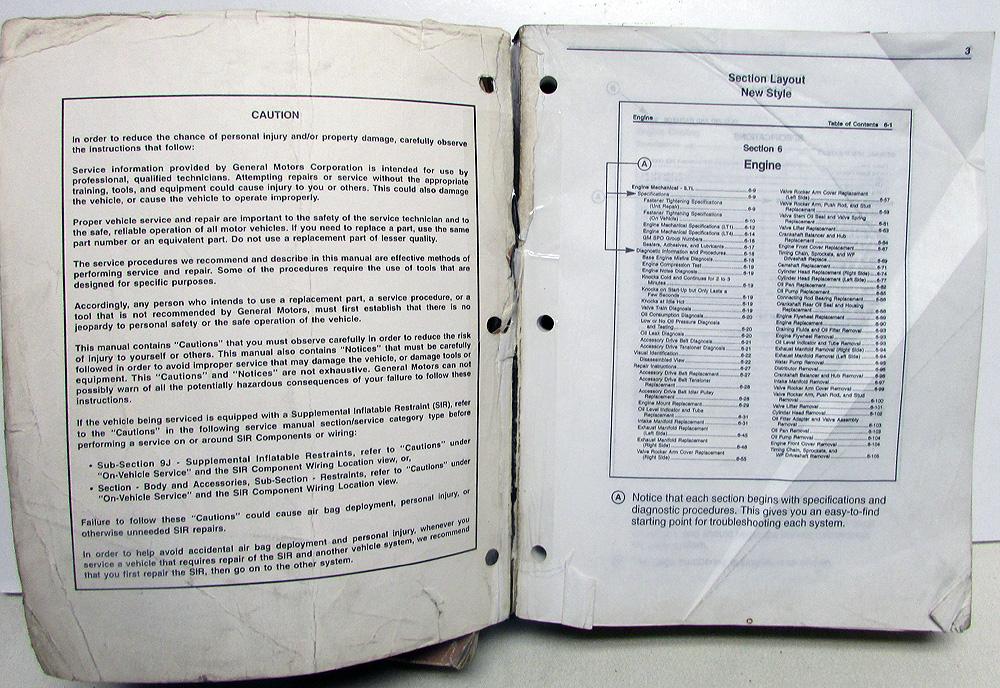 CAUTION
In order to reduce the chance of personal injury and/or property damage, carefully observe
the instructions that follow:
Service information provided by General Motors Corporation is intended for use by
professional, qualified technicians. Attempting repairs or service without the appropriate
training, tools, and equipment could cause injury to you or others. This could also damage
the vehicle, or cause the vehicle to operate improperly.
Proper vehicle service and repair are important to the safety of the service technician and to
the safe, reliable operation of all motor vehicles. If you need to replace a part, use the same
part number or an equivalent part. Do not use a replacement part of lesser quality.
The service procedures we recommend and describe in this manual are effective methods of
performing service and repair. Some of the procedures require the use of tools that are
designed for specific purposes.
Accordingly, any person who intends to use a replacement part, a service procedure, or a
tool that is not recommended by General Motors, must first establish that there is no
jeopardy to personal safety or the safe operation of the vehicle.
This manual contains "Cautions" that you must observe carefully in order to reduce the risk
of injury to yourself or others. This manual also contains "Notices" that must be carefully
followed in order to avoid improper service that may damage the vehicle, or damage tools or
equipment. This "Cautions" and "Notices" are not exhaustive. General Motors can not
possibly warn of all the potentially hazardous consequences of your failure to follow these
instructions.
If the vehicle being serviced is equipped with a Supplemental Inflatable Restraint (SIR), refer
to the "Cautions" in the following service manual section/service category type before
performing a service on or around SIR Components or wiring:
• Sub-Section 9J - Supplemental Inflatable Restraints, refer to "Cautions" under
"On-Vehicle Service" and the SIR Component Wiring Location view, or,
• Section - Body and Accessories, Sub-Section - Restraints, refer to "Cautions" under
"On-Vehicle Service" and the SIR Component Wiring Location view.
Failure to follow these "Cautions" could cause air bag deployment, personal injury, or
otherwise unneeded SIR repairs.
In order to help avoid accidental air bag deployment and personal injury, whenever you
service a vehicle that requires repair of the SIR and another vehicle system, we recommend
that you first repair the SIR, then go on to the other system.
3
Section Layout
New Style
Engine Table of Contents 6-1
Section 6
A Engine
Engine Mechanical - 5.7L 6-9
Specifications 6-9
Fastener Tightening Specifications
(Unit Repair) 6-9
Fastener Tightening Specifications
(On Vehicle) 6-10
Engine Mechanical Specifications (LT1) 6-12
Engine Mechanical Specifications (LT4) 6-14
GM SPO Group Numbers 6-16
Sealers, Adhesives, and Lubricants 6-17
Diagnostic Information and Procedures 6-18
Base Engine Misfire Diagnosis 6-18
Engine Compression Test 6-19
Engine Noise Diagnosis 6-19
Knocks Cold and Continues for 2 to 3
Minutes 6-19
Knocks on Start-Up but Only Lasts a
Few Seconds 6-19
Knocks at Idle Hot 6-19
Valve Train Diagnosis 6-19
Oil Consumption Diagnosis 6-20
Low or No Oil Pressure Diagnosis
and Testing 6-20
Oil Leak Diagnosis 6-20
Accessory Drive Belt Diagnosis 6-21
Accessory Drive Tensioner Diagnosis 6-21
Visual Identification 6-22
Disassembled View 6-22
Repair Instructions 6-27
Accessory Drive Belt Replacement 6-27
Accessory Drive Belt Tensioner
Replacement 6-28
Accessory Drive Belt Idler Pulley
Replacement 6-28
Engine Mount Replacement 6-29
Oil Level Indicator and Tube
Replacement 6-31
Intake Manifold Replacement 6-31
Exhaust Manifold Replacement
(Left Side) 6-45
Exhaust Manifold Replacement
(Right Side) 6-48
Valve Rocker Arm Cover Replacement
(Right Side) 6-55
Valve Rocker Arm Cover Replacement
(Left Side) 6-57
Valve Rocker Arm, Push Rod, and Stud
Replacement 6-59
Valve Stem Oil Seal and Valve Spring
Replacement 6-61
Valve Lifter Replacement 6-63
Crankshaft Balancer and Hub
Replacement 6-64
Engine Front Cover Replacement 6-67
Timing Chain, Sprockets, and WP
Driveshaft Replace 6-69
Camshaft Replacement 6-71
Cylinder Head Replacement (Right Side) 6-74
Cylinder Head Replacement (Left Side) 6-77
Oil Pan Replacement
Oil Pump Replacement
Connecting Rod Bearing Replacement
Crankshaft Rear Oil Seal and Housing
Replacement
Engine Flywheel Replacement
Engine Replacement
Draining Fluids and Oil Filter Removal
Engine Flywheel Removal
Oil Level Indicator and Tube Removal
Exhaust Manifold Removal (Right Side)
Exhaust Manifold Removal (Left Side)
Water Pump Removal
Distributor Removal
Crankshaft Balancer and Hub Removal
Intake Manifold Removal
Valve Rocker Arm Cover Removal
Valve Rocker Arm, Push Rod, and Stud
Removal 6-100
Valve Lifter Removal 6-101
Cylinder Head Removal 6-102
Oil Filter Adapter and Valve Assembly
Removal 6-103
Oil Pan Removal 6-103
Oil Pump Removal 6-104
Engine Front Cover Removal 6-104
Timing Chain, Sprockets, and
WP Driveshaft Removal 6-105
A Notice that each section begins with specifications and
diagnostic procedures. This gives you an easy-to-find
starting point for troubleshooting each system.